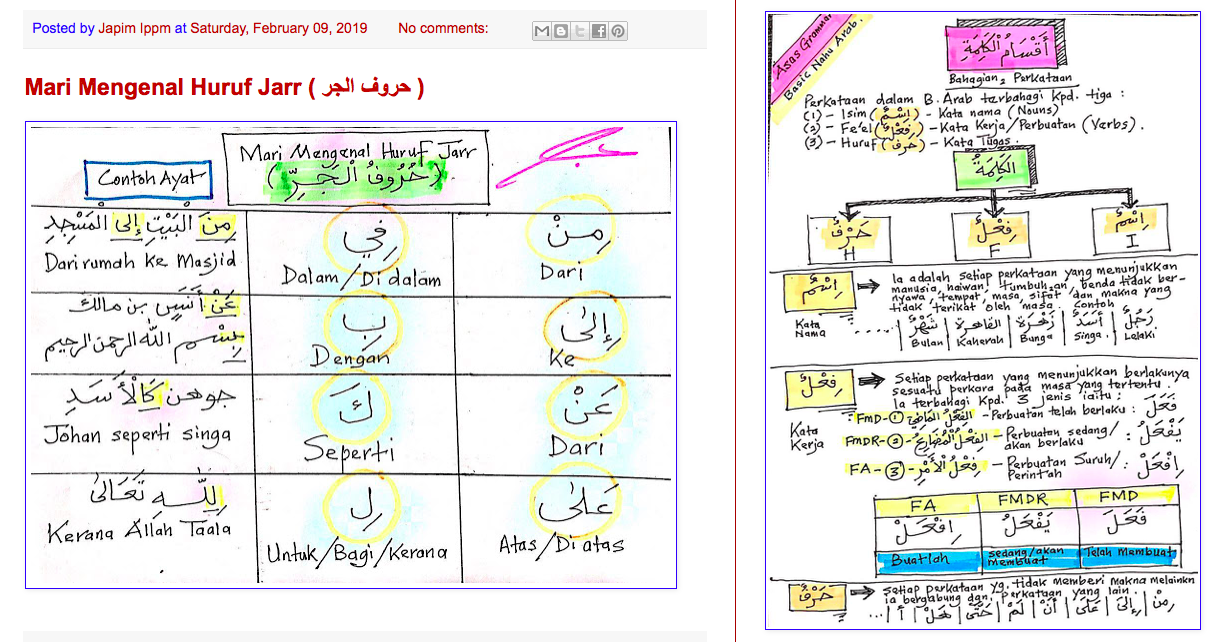 Posted by Japim Ippm at Saturday, February 09, 2019 No comments:
Mari Mengenal Huruf Jarr ( حروف الجر )
Mari Mengenal Huruf Jarr
(حُرُوفُ الْجَرِّ)
Contoh Ayat
مِنَ الْبَيْتِ إِلَى الْمَسْجِدِ
Dari rumah ke Masjid
فِي
Dalam/Di dalam
مِنْ
Dari
عَنْ أَنَسِ بن مالك
بِسْمِ الله الرحمن الرحيم
بِ
Dengan
إِلَى
Ke
جوهن كَالْأَسَدِ
Johan seperti singa
كَ
Seperti
عَنْ
Dari
لِلَّهِ تَعَالَى
Kerana Allah Taala
لِ
Untuk/Bagi/Kerana
عَلَى
Atas/Di atas
Asas Grammar
Basic Nahu Arab.
أَقْسَامُ الْكَلِمَةِ
Bahagian2 Perkataan
Perkataan dalam B. Arab terbahagi kpd. tiga :
(1) - Isim (اِسْمٌ) - Kata nama (Nouns)
(2) - Fe'el (فِعْلٌ) - Kata Kerja/Perbuatan (Verbs).
(3) - Huruf (حَرْفٌ) - Kata Tugas.
الْكَلِمَةُ
حَرْفٌ
H
فِعْلٌ
F
اِسْمٌ
I
اِسْمٌ
Kata Nama
Ia adalah setiap perkataan yang menunjukkan
manusia, haiwan, tumbuhan, benda tidak ber-
nyawa, tempat, masa, sifat dan makna yang
tidak terikat oleh masa. Contoh
رَجُلٌ | أَسَدٌ | زَهْرَةٌ | القاهرة | شَهْرٌ | .....
Lelaki | Singa. | Bunga | Kaherah | Bulan
فِعْلٌ
Kata Kerja
Setiap perkataan yang menunjukkan berlakunya
sesuatu perkara pada masa yang tertentu.
Ia terbahagi kpd. 3 jenis iaitu :
FMD-① الفِعْلُ الْمَاضِي - Perbuatan telah berlaku : فَعَلَ
FMDR-②- الفِعْلُ الْمُضَارِعُ - Perbuatan sedang/akan berlaku : يَفْعَلُ
FA-③- فِعْلُ الْأَمْرِ - Perbuatan Suruh/Perintah : اِفْعَلْ
FA | FMDR | FMD
اِفْعَلْ | يَفْعَلُ | فَعَلَ
Buatlah | sedang/akan membuat | Telah membuat
حَرْفٌ
setiap perkataan yg. tidak memberi makna melainkn
ia bergabung dgn. perkataan yang lain.
مِنْ | إِلَى | عَلَى | أَنْ | لَمْ | حَتَّى | هَلْ | أَ | ...